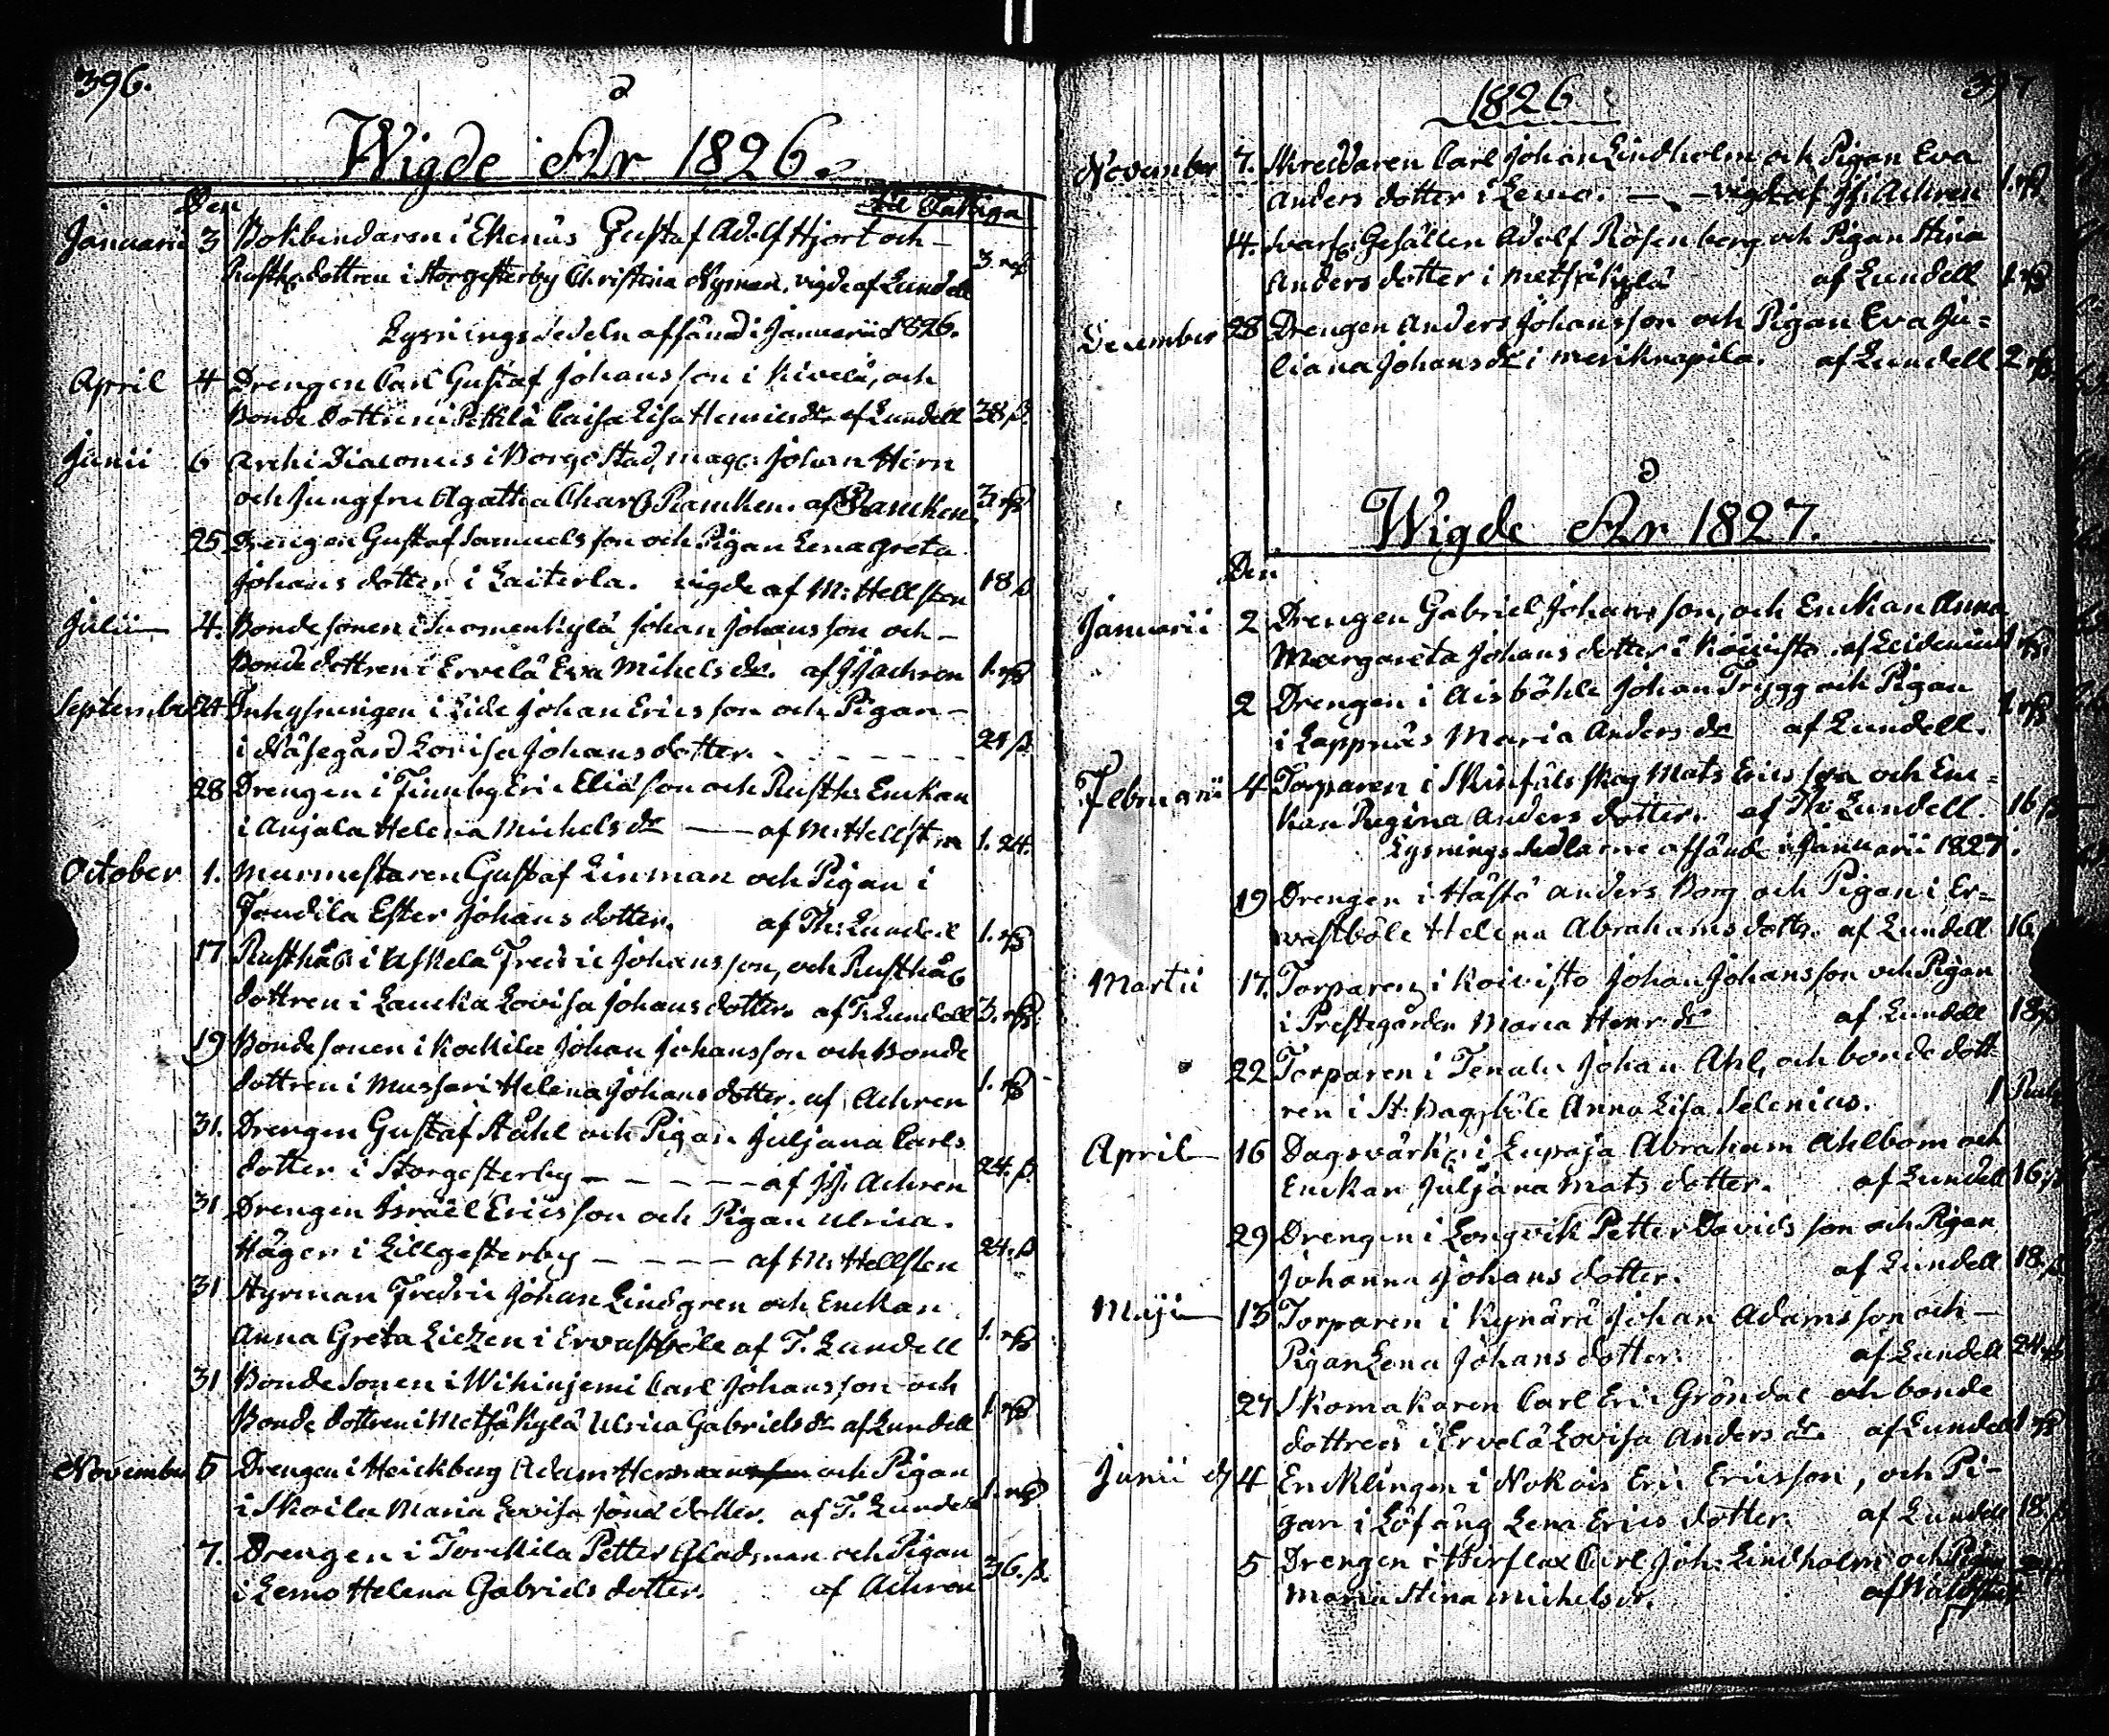 396.
Wigde År 1826.
Den
till Fattiga
Januarii 3 Bokbindaren i Ekenäs Gustaf Adolf Hjort och
Rusth: dottren i Storgesterby Christina Nyman, vigde af Lundell 3. rß
Lysningssedeln afsänd i Januarii 1826.
April 4 Drengen Carl Gustaf Johansson i Kivelä, och
Bonde dottren i Pettilä Caisa Lisa Henricsdr af Lundell 38 ß.
Junii 6 Archi Diaconus i Borgå Stad, mag: Johan Hirn
och Jungfru Agatha Charl: Rancken. af Rancken 3 rß
25 Drengen Gustaf Samuelsson och Pigan Lena Greta
Johans dotter i Laiterla. vigde af M: Hellsten 18 ß
Julii 4. Bondesonen i Suomenkylä Johan Johansson och
Bondedottren i Ervelä Eva Mihels dr. af JJ Achren 1. rß
September 24 Inhysningen i Lide Johan Ericsson och Pigan
i Näsegård Lovisa Johansdotter. 24 ß.
28 Drengen i Finnby Eric Eliasson och Rusth: Enckan
i Anjala Helena Michels dr af M: Hellsten 1. 24.
October 1. Murmestaren Gustaf Linman och Pigan i
Ester Johans dotter. af Th: Lundell 1. rß
17 Rusthål: i Uskela Fredric Johansson, och Rusthål:
dottren i Laucka Lovisa Johans dotter. af T. Lundell 3. rß.
19 Bondesonen i Kockila Johan Johansson och Bonde
dottren i Mussari Helena Johans dotter. af Achren 1. rß
31. Drengen Gustaf Ståhl och Pigan Juljana Carls
dotter i Storgesterby af JJ. Achren 24. ß.
31 Drengen Israël Ericsson och Pigan Ulrica
Häger i Lillgesterby af M: Hellsten 24. ß
31 Styrman Fredric Johan Lindgren och Enckan
Anna Greta Lietzen i Ervastböle af T. Lundell 1. rß
31 Bondesonen i Wihinjemi Carl Johansson och
Bonde dottren i Metsäkylä Ulrica Gabriels dr af Lundell 1 rß
November 5 Drengen i Heickberg Adam Herman och Pigan
i Skoila Maria Lovisa Jonae dotter. af T. Lundell 1. rß
7. Drengen i Torkkila Petter Gladsman och Pigan
i Lemo Helena Gabriels dotter. af Achren 36. ß.
397
1826
November 7. Skreddaren Carl Johan Lindholm och Pigan Eva
Anders dotter i Lemo. vigde af JJ: Achren 1. rß
14. Svarf: Gesällen Adolf Rosenberg och Pigan Stina
Anders dotter i Metsäkylä af Lundell 1. rß
December 28 Drengen Anders Johansson och Pigan Eva Ju=
liana Johans dr i Meriknapila. af Lundell 2 rß.
Wigde År 1827.
Den
Januarii 2 Drengen Gabriel Johansson, och Enckan Anna
Margareta Johans dotter i Koivisto. af 1 rß.
2 Drengen i Aisböhle Johan Trygg och Pigan
i Lappnäs Maria Anders dr af Lundell. 1 rß
Februarii 4 Torparen i Skinfälsskog Mats Ericsson och Enc=
kan Regina Anders dotter. af Th: Lundell. 16 ß
Lysnings Sedlarne afsände i Januarii 1827.
19 Drengen i Hästö Anders Borg och Pigan i Er=
vastböle Helena Abrahams dotter. af Lundell 16
Martii 17. Torparen i Koivisto Johan Johansson och Pigan
i Prestegården Maria Henr: dr af Lundell 18 ß
22 Torparen i Tenala Johan Ahl, och bonde dott
ren i St: Baggböle Anna Lisa Selenius. 1 Rub
April 16 Dagsvärk: i Lupaja Abraham Ahlbom och
Enckan Juljana Mats dotter. af Lundell 16 ß
29 Drengen i Longvik Petter Davidsson och Pigan
Johanna Johans dotter. af Lundell 18. ß
Maji 13 Torparen i Kynärä Johan Adamsson och
Pigan Lena Johans dotter. af Lundell 24 ß
27 Skomakaren Carl Eric Gröndal och bonde
dottren i Ervelä Lovisa Anders dr. af Lundell 1 rß
Junii d 4 Encklingen i Nokois Eric Ericsson, och Pi-
gan i Löfäng Lena Erics dotter. af Lundell 18. ß
5 Drengen i Hirflax Carl Joh: Lindholm och Pigan
Maria Stina Michels dr. af